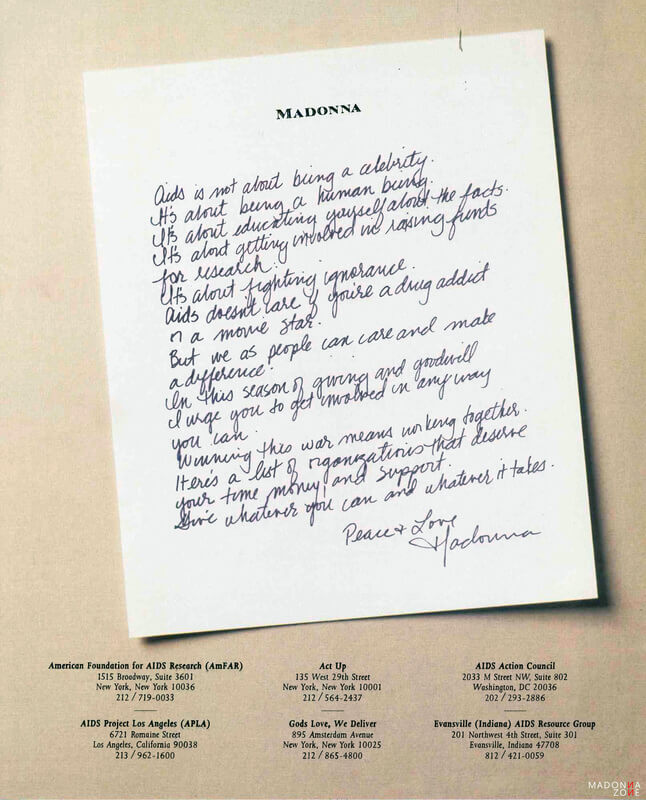 MADONNA
Aids is not about being a celebrity.
It's about being a human being.
It's about educating yourself about the facts.
It's about getting involved in raising funds
for research.
It's about fighting ignorance.
Aids doesn't care if you're a drug addict
or a movie star.
But we as people can care and make
a difference.
In this season of giving and goodwill
I urge you to get involved in any way
you can.
Winning this war means working together.
Here's a list of organizations that deserve
your time money and support.
Give whatever you can and whatever it takes.
Peace + Love
Madonna
American Foundation for AIDS Research (AmFAR)
1515 Broadway, Suite 3601
New York, New York 10036
212/719-0033
Act Up
135 West 29th Street
New York, New York 10001
212/564-2437
AIDS Action Council
2033 M Street NW, Suite 802
Washington, DC 20036
202/293-2886
AIDS Project Los Angeles (APLA)
6721 Romaine Street
Los Angeles, California 90038
213/962-1600
Gods Love, We Deliver
895 Amsterdam Avenue
New York, New York 10025
212/865-4800
Evansville (Indiana) AIDS Resource Group
201 Northwest 4th Street, Suite 301
Evansville, Indiana 47708
812/421-0059
MADONNA
ZONE